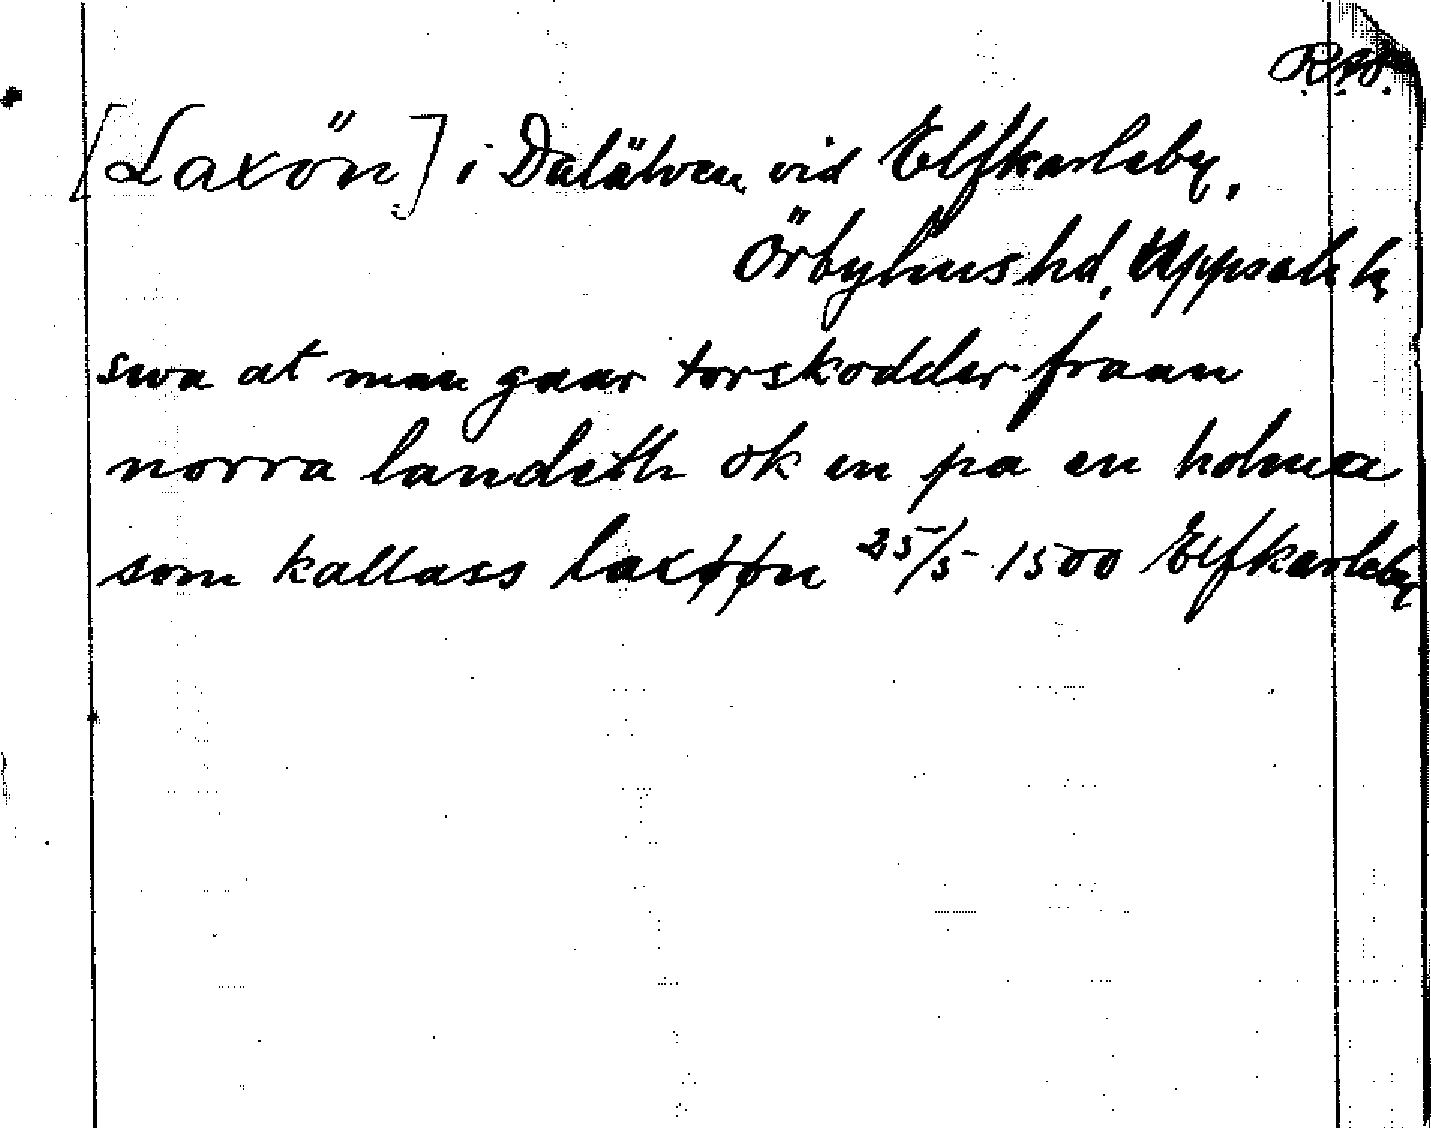 R.A.
[Laxön] i Dalälven vid Elfkarleby,
Örbyhus hd, Uppsala l.
swa at man gaar torskodder fraan
norra landeth ok en pa en holma
som kallass laxøøn 25/5 1500 Elfkarleby